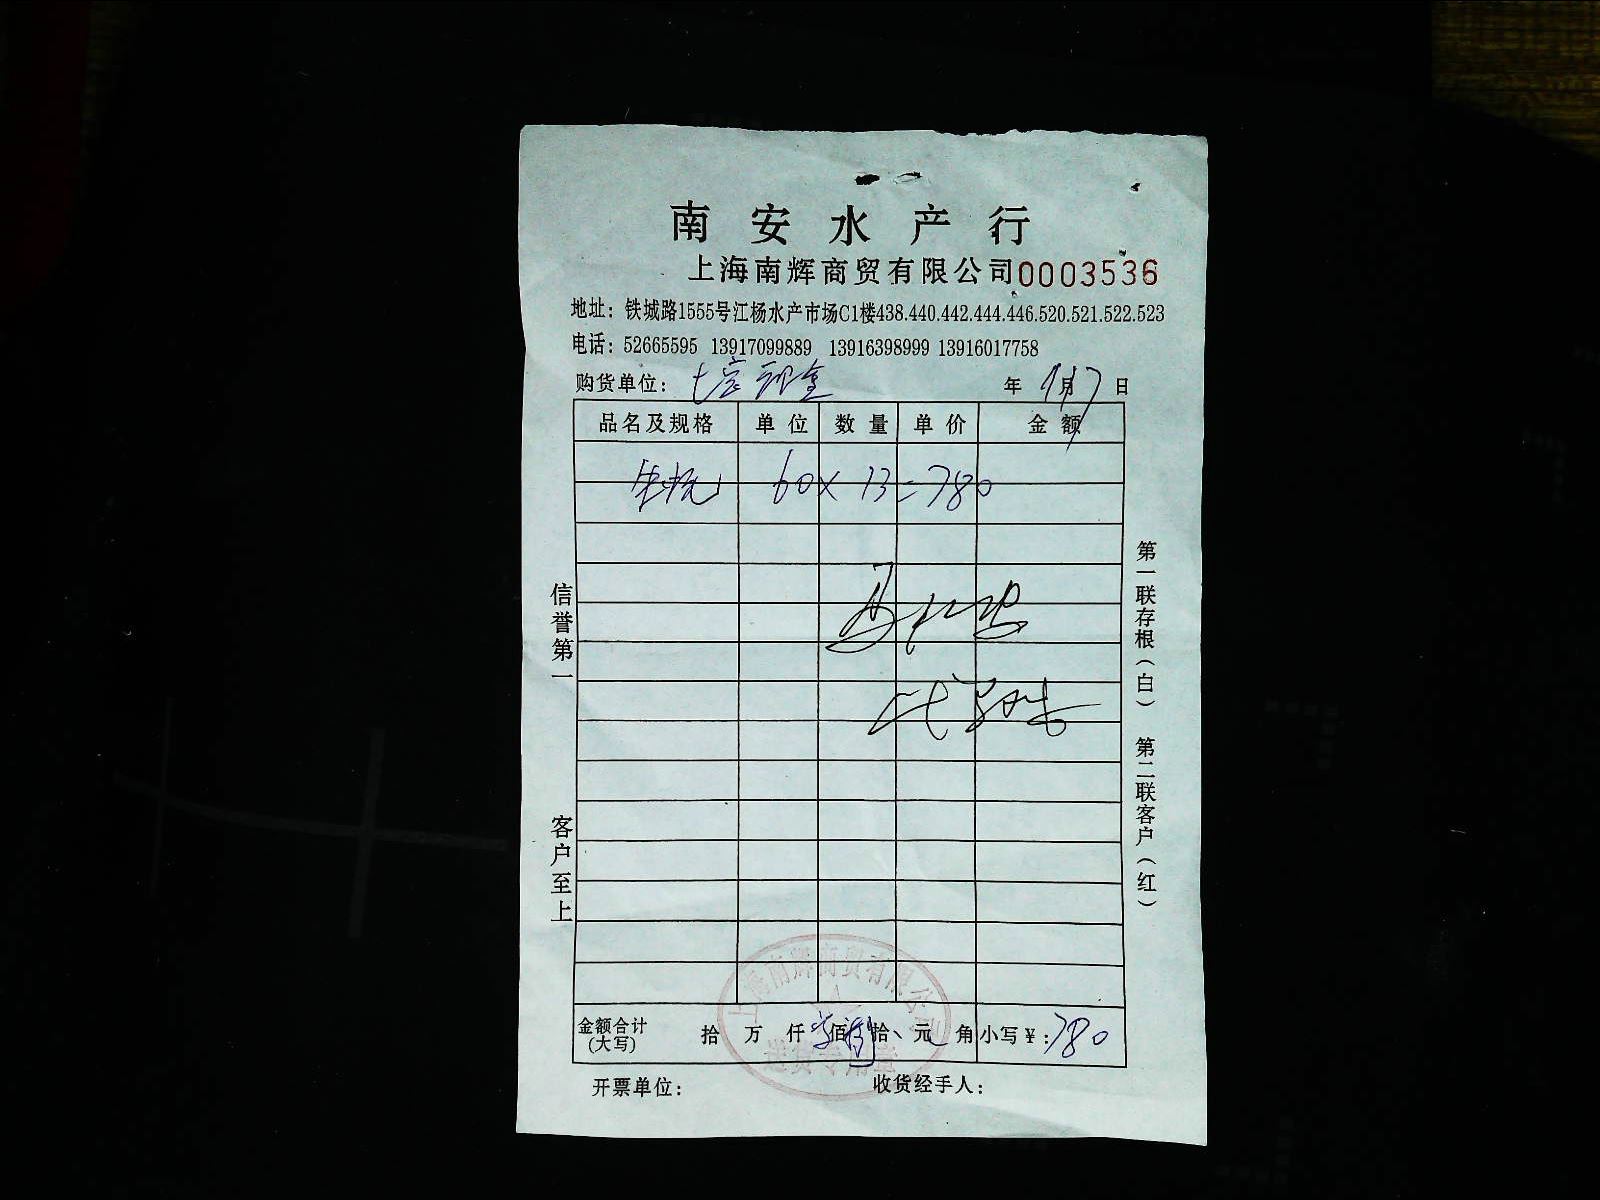 南安水产行
上海南辉商贸有限公司0003536
地址：铁城路1555号江杨水产市场C1楼438.440.442.444.446.520.521.522.523
电话：52665595 13917099889 13916398999 13916017758
购货单位： 年 月7日
品名及规格 单位 数量 单价 金额
60×13=780
信誉第一
客户至上
第一联存根（白） 第二联客户（红）
上海南辉商贸有限公司
金额合计 拾 万 仟 佰 拾 元 角 小写￥：780
(大写)
开票单位： 收货经手人：